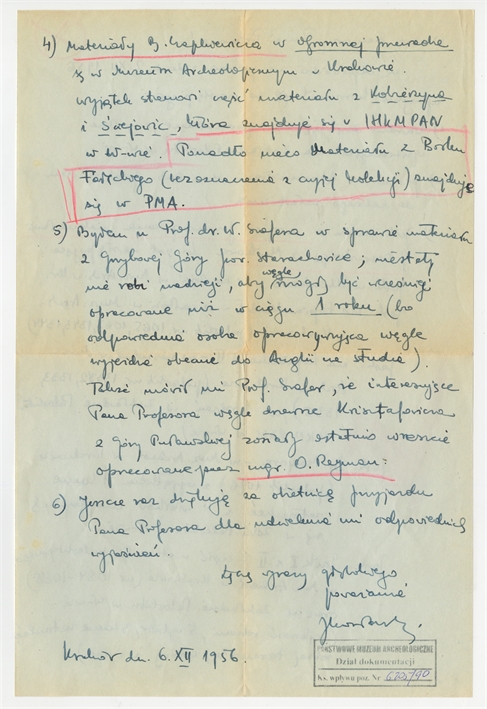 4) Materiały B. Czapkiewicza w ogromnej
są w Muzeum Archeologicznym w Krakowie.
wyjątek stanowi część materiału z Kobierzyna
i , która znajduje się w IHKMPAN
w W-wie. Ponadto nieco Materiału z Borku
Fałęckiego (bez oznaczenia z czyjej kolekcji) znajduje
się w PMA.
5) Byłam u Prof. dr. W. Szafera w sprawie materiału
z Grzybowej Góry pow. Starachowice; niestety
nie robi nadzieji, aby węgle mogły być wcześniej
opracowane niż w ciągu 1 roku (bo
odpowiednia osoba opracowywująca węgle
wyjeżdża obecnie do Anglii na studia).
Także mówił mi Prof. Szafer, że interesujące
Pana Profesora węgle drzewne Krisztafowicza
z Góry Puławskiej zostały ostatnio wreszcie
opracowane przez mgr. O. Reyman.
6) Jeszcze raz dziękuję za obietnicę przyjazdu
Pana Profesora dla udzielenia mi odpowiednich
wyjaśnień.
Łączę wyrazy głębokiego
poważania
Kraków dn. 6. XII 1956.
PAŃSTWOWE MUZEUM ARCHEOLOGICZNE
Dział dokumentacji
Ks. wpływu poz. Nr